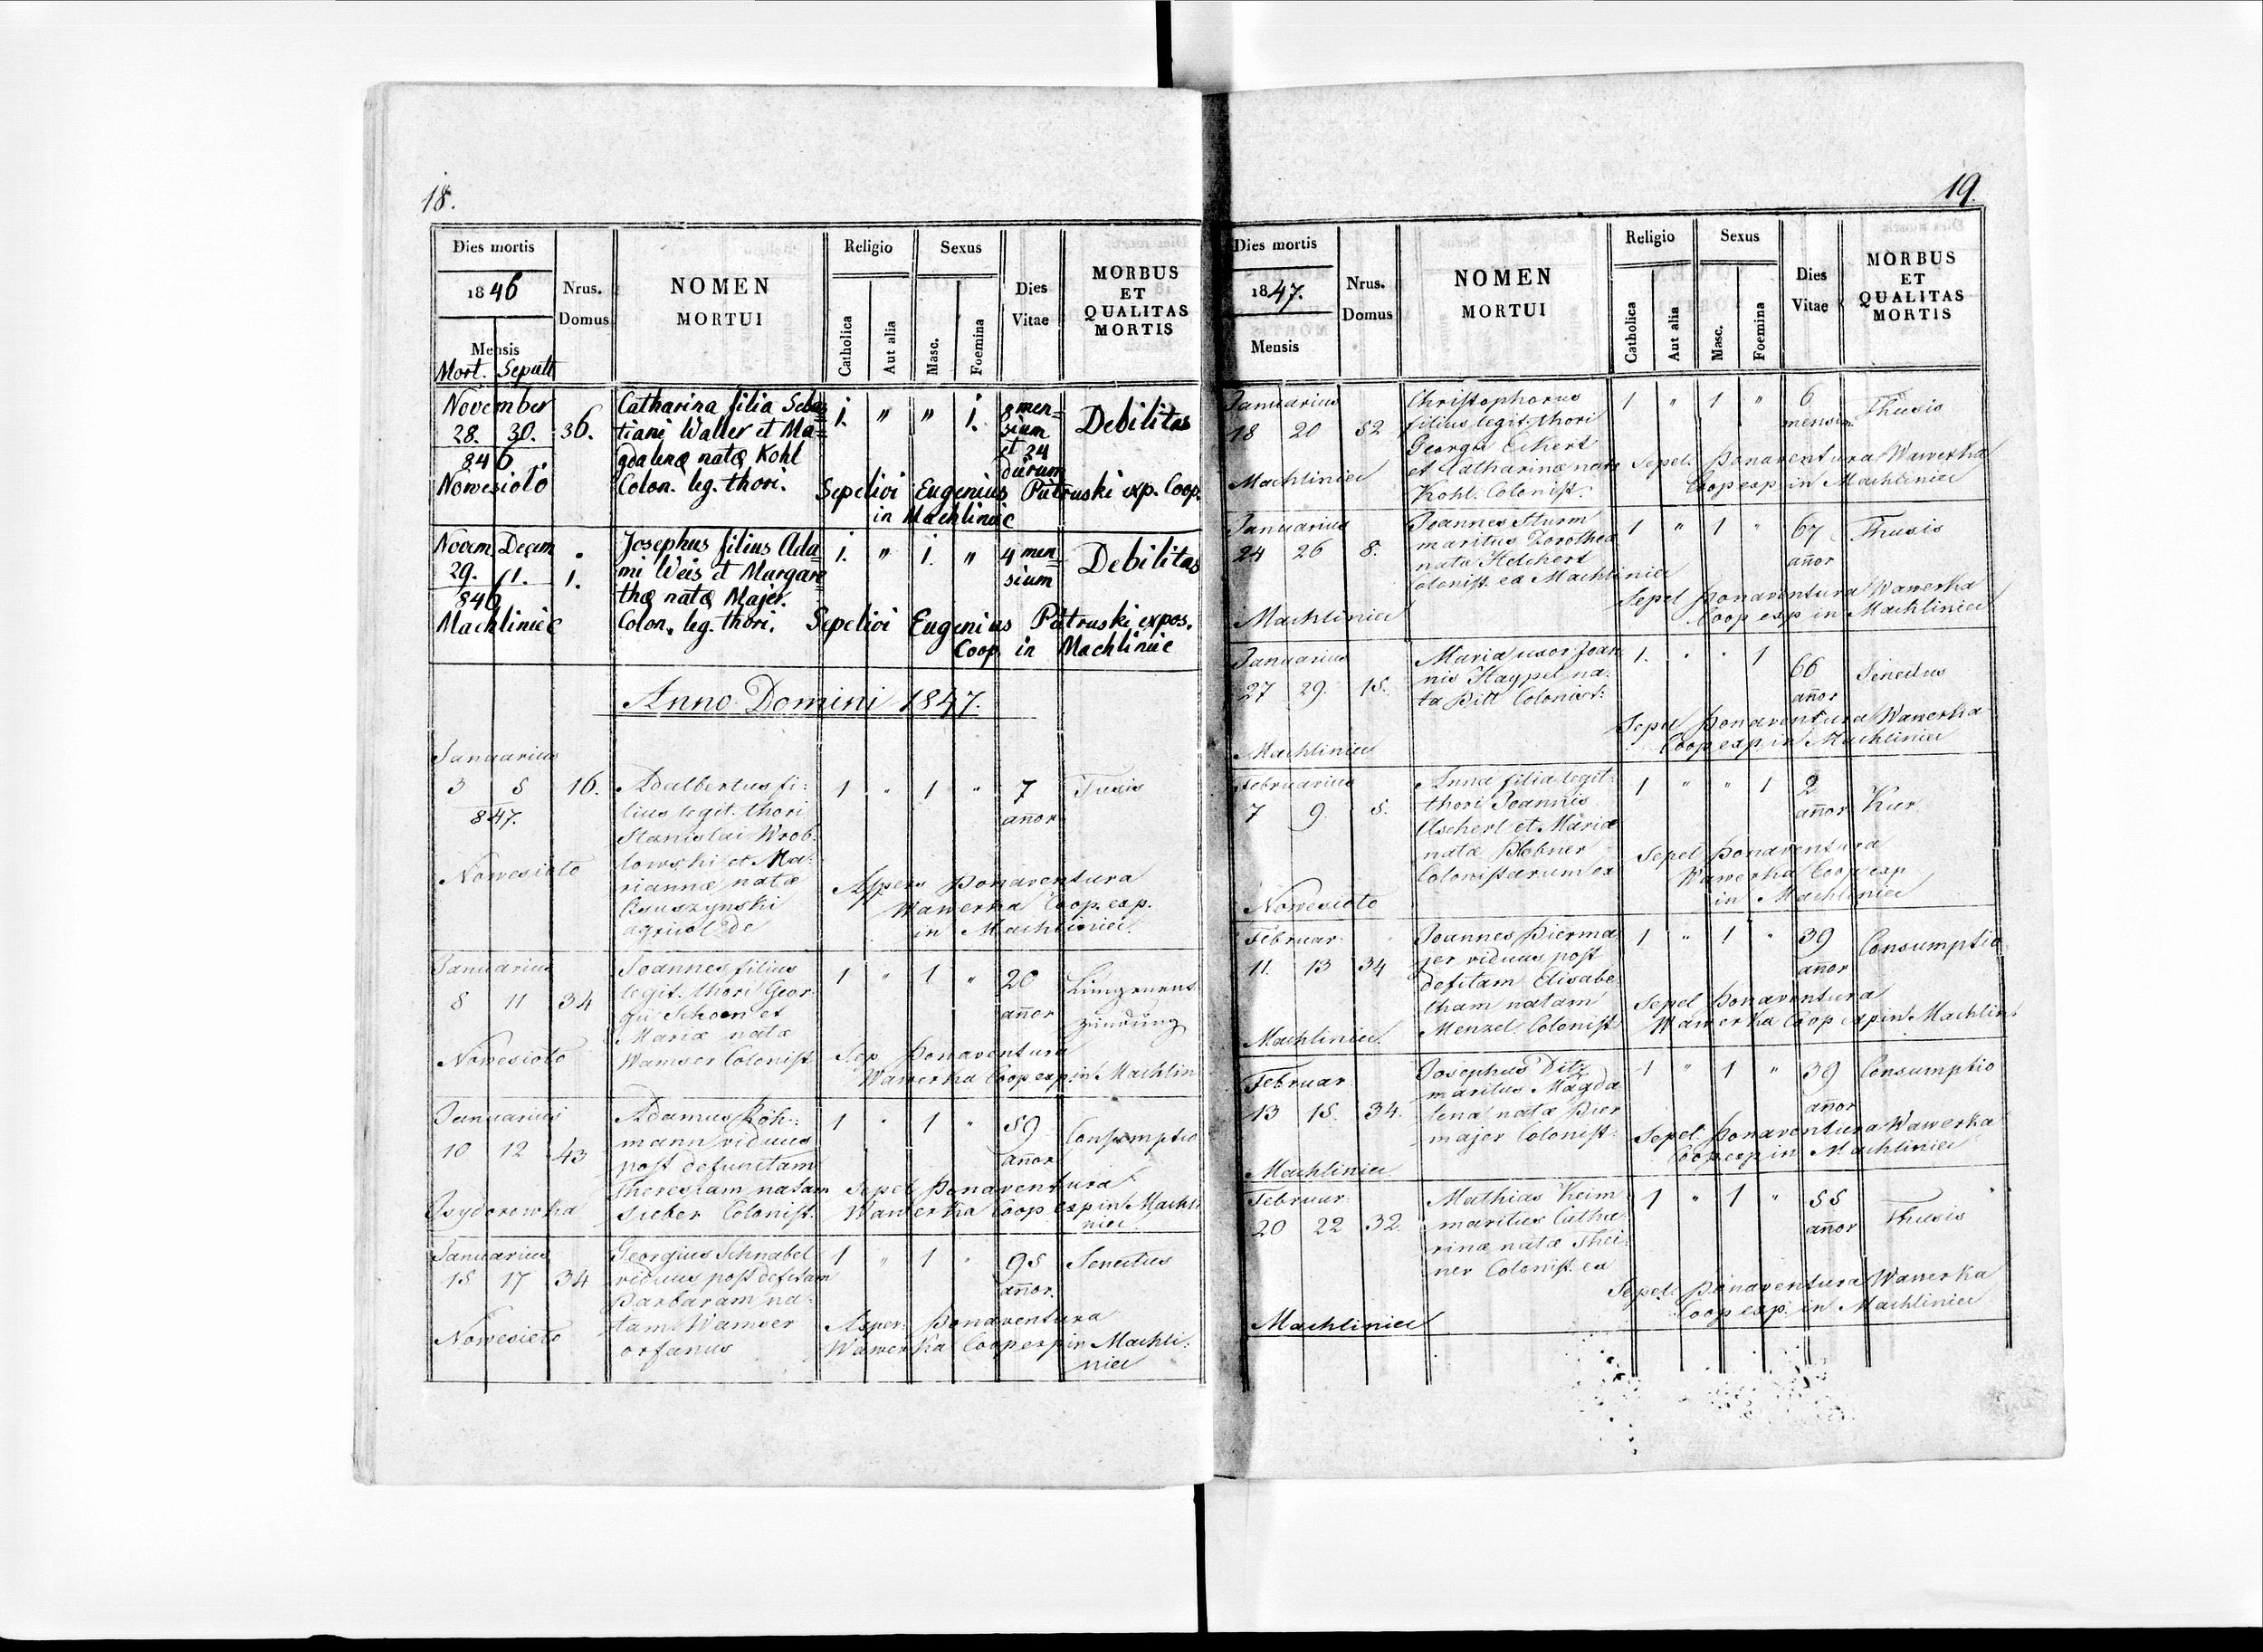 18.
Dies mortis
1846
Mensis
Mort. Sepult
Nrus.
Domus
NOMEN
MORTUI
Religio
Catholica
Aut alia
Sexus
Masc.
Foemina
Dies
Vitae
MORBUS
ET
QUALITAS
MORTIS
November
28. 30. 36.
846.
Nowesioło
Catharina filia Seba=
tiani Walter et Ma=
gdalenæ natæ Kohl
Colon. leg. thori.
1. " " 1.
8 men=
sium
et 24
dierum
Debilitas
Sepelivi Eugenius Patruski exp. Coop.
in Machliniec
Novem Decem
29. 1. 1.
846
Machliniec
Josephus filius Ada
mi Weis et Marga=
thæ natæ Majer.
Colon. leg. thori.
1. " 1. "
4 men
sium
Debilitas
Sepelivi Eugenius Patruski expos.
Coop. in Machliniec
Anno Domini 1847.
Januarius
3 5 16.
847.
Nowesioło
Adalbertus fi:
lius legit. thori
Stanislai Wrob:
lowski et Ma:
riannæ natæ
agricol de
1 " 1 "
7
añor
Tusis
Aspers Bonaventura
Wawerka Coop. exp.
in Machliniec
Januarius
8 11 34
Nowesioło
Joannes filius
legit. thori Geor:
gii Schoen et
Mariæ natæ
Wamser Colonist
1 " 1 "
20
añor
Lungenent
zündung
Sep. Bonaventura
Wawerka Coop exp. in Machlin
Januarius
10 12 43
Isydorowka
Adamus Böh:
mann viduus
post defunctam
Theresiam natam
Sieber Colonist.
1 " 1 "
59
añor
Consomptio
Sepel Bonaventura
Wawerka Coop exp in Machli
niec
Januarius
15 17 34
Nowesioło
Georgius Schnabel
viduus post defctam
Barbaram na:
tam Wamser
orfanus
1 " 1 "
95
añor.
Senectus
Asper. Bonaventura
Wawerka Coop exp in Machli:
niec
19.
Dies mortis
1847.
Mensis
Nrus.
Domus
NOMEN
MORTUI
Religio
Catholica
Aut alia
Sexus
Masc.
Foemina
Dies
Vitae
MORBUS
ET
QUALITAS
MORTIS
Januarius
18 20 52
Machliniec
Christophorus
filius legit. thori
Georgii Eckert
et Catharinæ natæ
Kohl. Colonist.
1 " 1 "
6
mensium
Thusis
Sepel. Bonaventura Wawerka
Coop exp. in Machliniec
Januarius
24 26 8.
Machliniec
Joannes Sturm
maritus Dorothea
nata Helchert
Colonist. ex Machliniec
1 " 1 "
67
añor
Thusis
Sepel Bonaventura Wawerka
Coop exp in Machliniec
Januarius
27 29. 15.
Machliniec
Maria uxor Joan
nis Haypel na:
ta Pitt Colonist:
1. " " 1
66
añor
Senectus
Sepel Bonaventura Wawerka
Coop exp in Machliniec
Februarius
7 9. 5.
Nowesioło
Anna filia legit:
thori Joannis
Ascherl et Mariæ
natæ Plobner
Colonistarum ex
1 " " 1
2
añor
Sepel Bonaventura
Wawerka Coop exp
in Machliniec
Februar.
11. 13 34
Machliniec.
Joannes Bierma
jer viduus post
defctam Elisabe
tham natam
Menzel. Colonist
1 " 1 "
39
añor
Consumptio
Sepel Bonaventura
Wawerka Coop exp in Machlin.
Februar
13 15. 34.
Machliniec
Josephus Ditz
maritus Magda
lenæ natæ Bier
majer Colonist.
1 " 1 "
39
añor
Consumptio
Sepel. Bonaventura Wawerka
Coop exp in Machliniec
Februar.
20 22 32.
Machliniec
Mathias Keim
maritus Catha
rinæ natæ Shei:
ner Colonist. ex
1 " 1 "
55
añor
Thusis
Sepel. Bonaventura Wawerka
Coop exp. in Machliniec